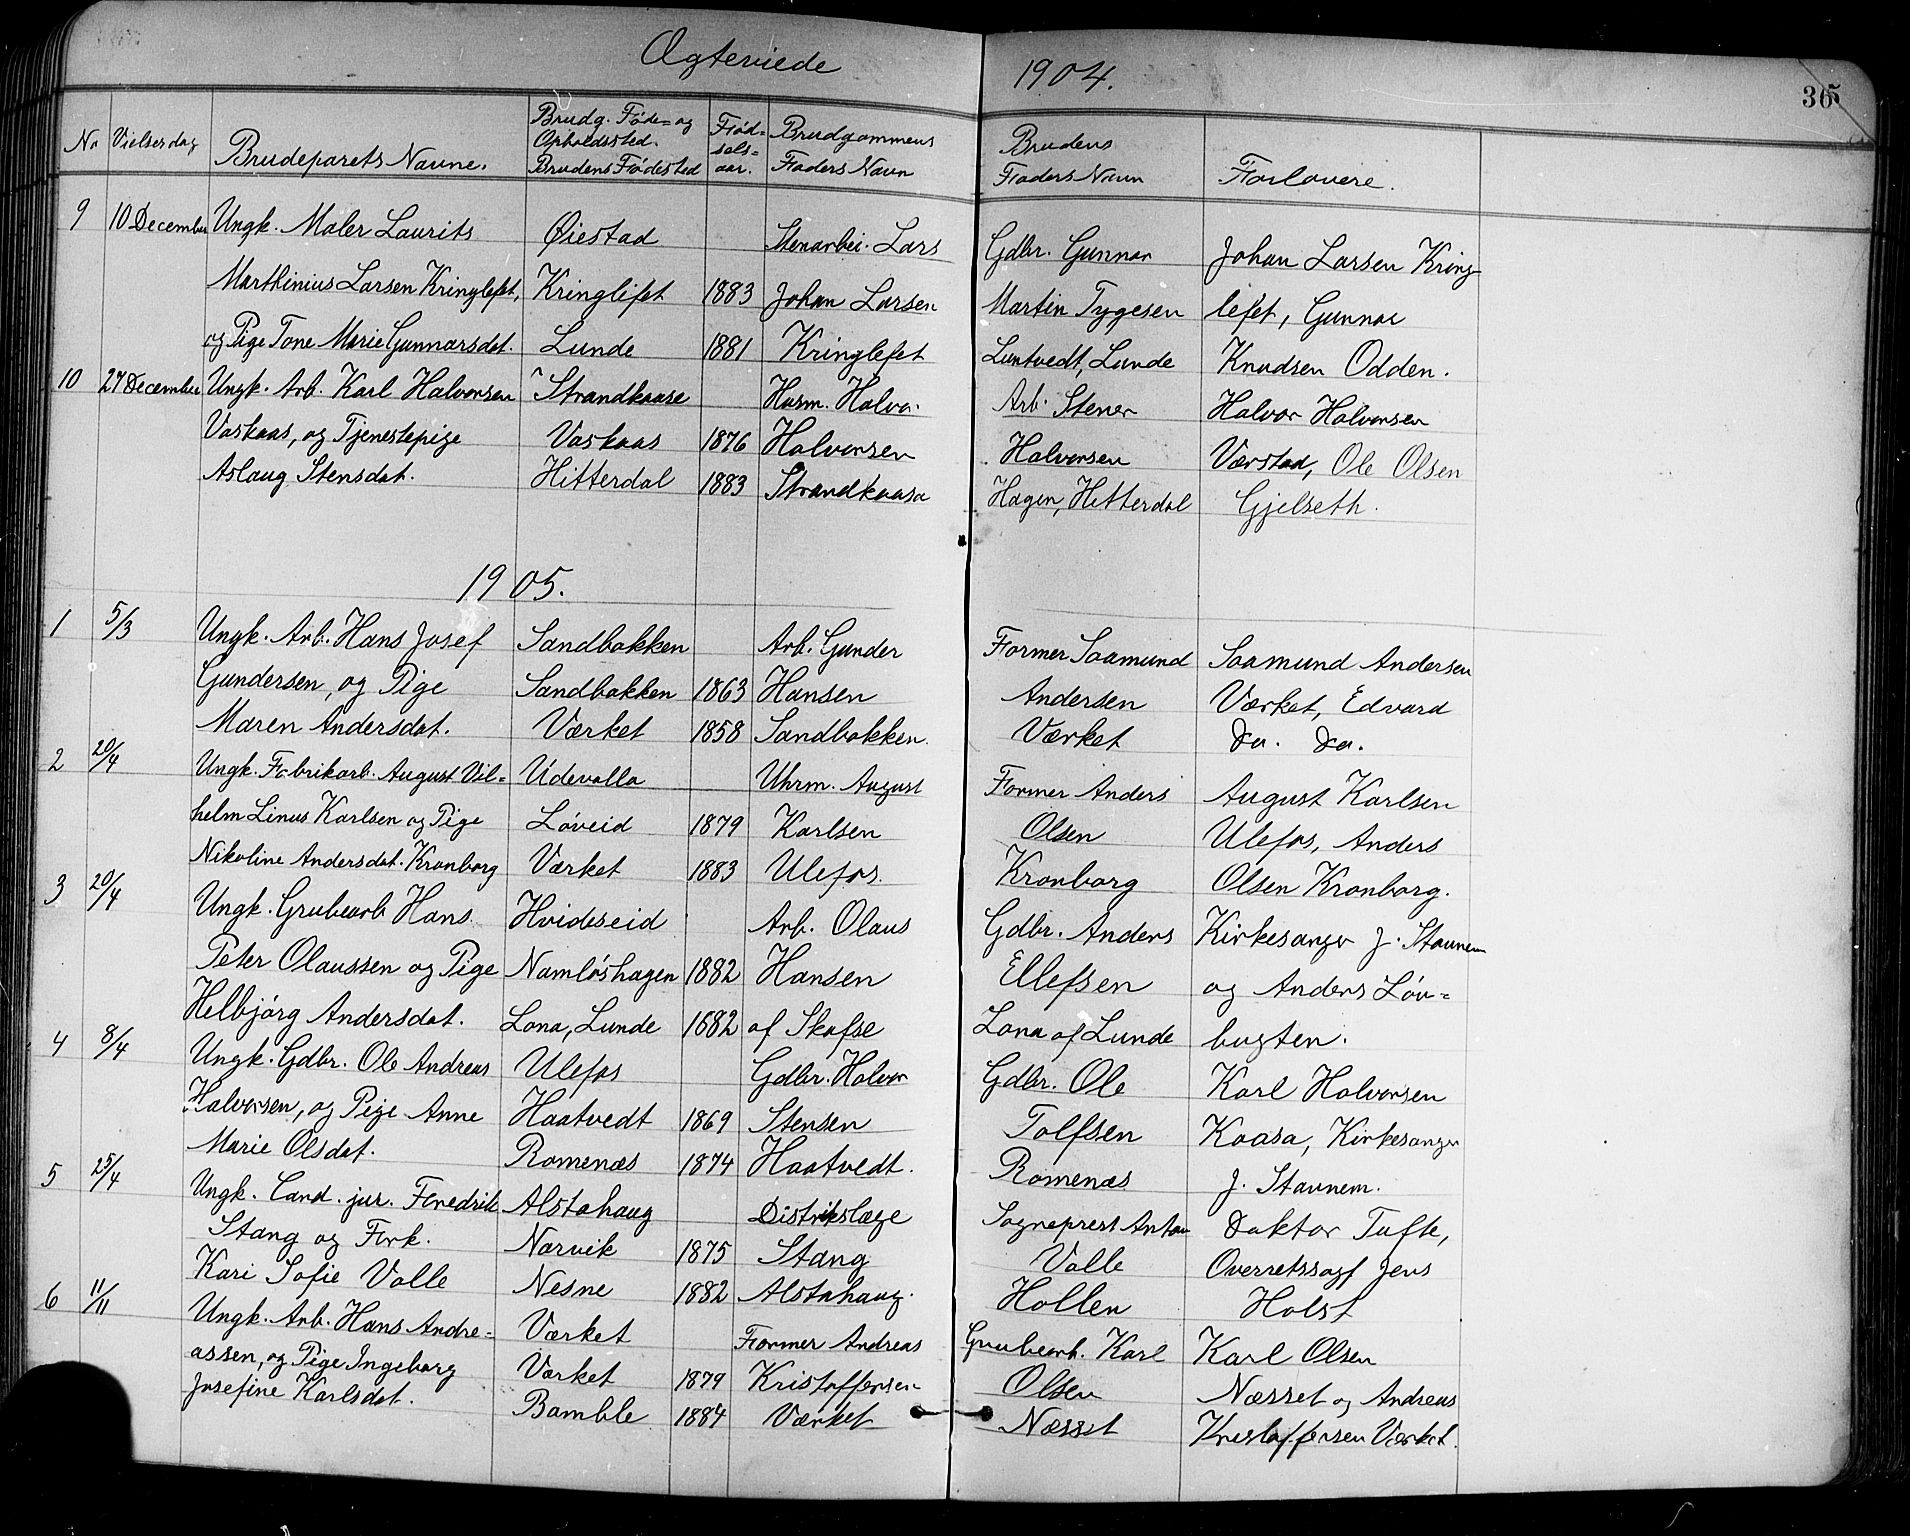 Ægteviede 1904.
365
No Vielsesdag Brudeparets Navne. Brudg. Føde- og Opholdssted. Brudens Fødested Fødselsaar. Brudgommens Faders Navn Brudens Faders Navn Forlovere.
9 10 December Ungk. Maler Laurits Øiestad Stenarbei. Lars Gdbr. Gunnar Johan Larsen Kring-
Marthinius Larsen Kringlefet, Kringlifet 1883 Johan Larsen Martin Tygesen lefet, Gunnar
og Pige Tone Marie Gunnarsdat. Lunde 1881 Kringlefet Lunde Knudsen Odden.
10 27 December Ungk. Arb. Karl Halvorsen Strandkaase Husm. Halvor Arb. Stener Halvor Halvorsen
Vaskaas, og Tjenestepige Vaskaas 1876 Halvorsen Halvorsen Værstad, Ole Olsen
Aslaug Stensdat. Hitterdal 1883 Strandkaasa Hagen, Hitterdal Gjelseth.
1905.
1 5/3 Ungk. Arb. Hans Josef Sandbakken Arb. Gunder Former Saamund Saamund Andersen
Gundersen, og Pige Sandbakken 1863 Hansen Andersen Værket, Edvard
Maren Andersdat. Værket 1858 Sandbakken. Værket Do. Do.
2 20/4 Ungk. Fabrikarb. August Vil= Udevalla Uhrm. August Former Anders August Karlsen
helm Linus Karlsen og Pige Løveid 1879 Karlsen Olsen Ulefos, Anders
Nikoline Andersdat. Kronborg Værket 1883 Ulefos. Kronborg Olsen Kronborg.
3 20/4 Ungk. Grubearb Hans Hvideseid Arb. Olaus Gdbr. Anders Kirkesanger J. Stavnem
Peter Olaussen og Pige Namløshagen 1882 Hansen Ellefsen og Anders Løv=
Helbjørg Andersdat. Lona, Lunde 1682 af Skafse Lona af Lunde bugten.
4 8/4 Ungk. Gdbr. Ole Andreas Ulefos Gdbr. Halvor Gdbr. Ole Karl Halvorsen
Halvorsen, og Pige Anne Haatvedt 1869 Stensen Tolfsen Kaasa, Kirkesanger
Marie Olsdat. Romenæs 1874 Haatvedt. Romenæs J. Stavnem.
5 25/4 Ungk. Cand. jur. Fredrik Alstahaug Distrikslæge Sogneprest Anton Doktor Tufte,
Stang og Frk. Narvik 1875 Stang Valle Overretssagf Jens
Kari Sofie Valle Nesne 1882 Alstahaug. Hollen Holst
6 11/11 Ungk. Arb. Hans Andre- Værket Former Andreas Grubearb. Karl Karl Olsen
assen, og Pige Ingeborg Værket 1879 Kristoffersen Olsen Næsset og Andreas
Josefine Karlsdat. Bamble 1884 Værket Næsset Kristoffersen Værket.